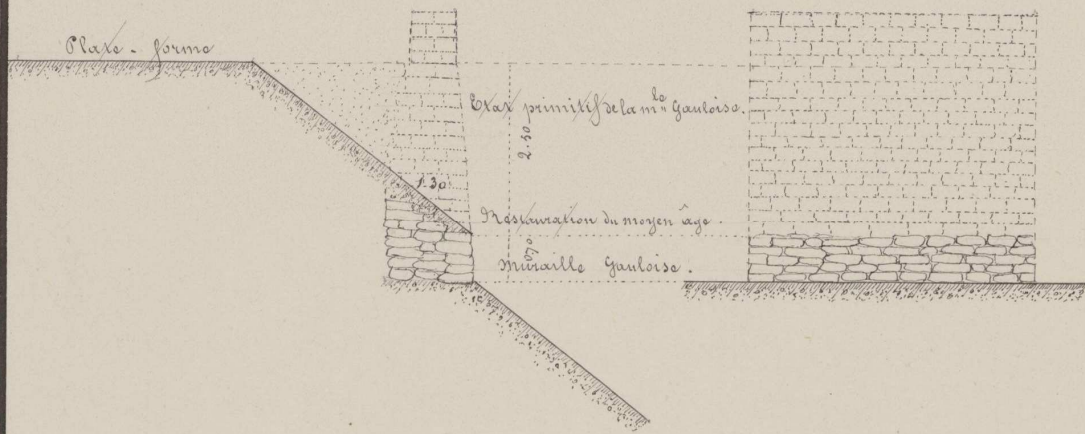 Plate-forme
Etat primitif de la m.lle Gauloise.
2.50
1.30
Restauration du moyen âge.
0.70
Muraille Gauloise.